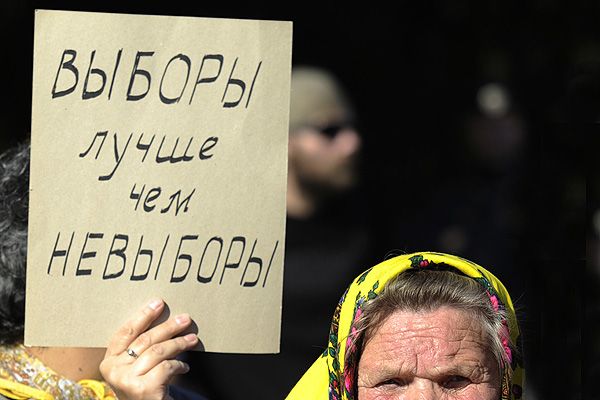 ВЫБОРЫ
лучше
чем
НЕВЫБОРЫ